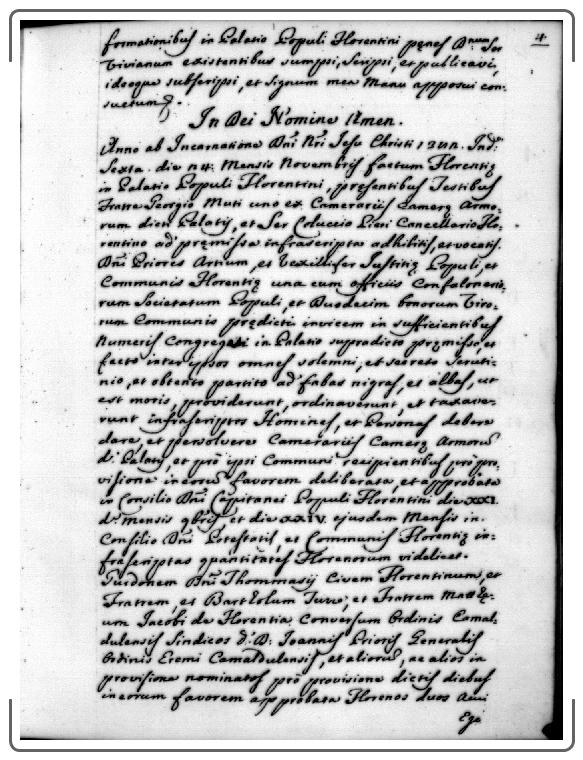 4
formationibus in Palatio Populi Florentini penes Dnum Ser
Vivianum existentibus sumpsi, scripsi, et publicavi,
ideoque subscripsi, et signum mea Manu apposui con-
suetum
In Dei Nomine Amen.
Anno ab Incarnatione Dni Nri Jesu Christi Ind:
Sexta. die Mensis Novembris factum Florentię
in Palatio Populi Florentini, pręsentibus Testibus
Fratre Georgio Muti uno ex Camerarijs Camerę Armo-
rum dicti Palatij, et Ser Coluccio Pieri Cancellario Flo-
rentino ad pręmissa infrascripta adhibitis, et vocatis.
Dni Priores Artium, et Vexillifer Justitię Populi, et
Communis Florentię una cum officiis Confalonerio-
rum Societatum Populi, et Duodecim bonorum Viro-
rum Communis prędicti invicem in sufficientibus
Numeris Congregati in Palatio supradicto pręmisso, et
facto inter ipsos omnes solemni, et secreto Scruti-
nio, et obtento partito ad fabas nigras, et albas, ut
est moris, providerunt, ordinaverunt, et taxave-
runt infrascriptos Homines, et Personas debere
dare, et persolvere Camerariis Camerę Armorum
d: Palatij, et prō ipsi Communi recipientibus prō pro-
visione in eorum favorem deliberata, et approbata
in Consilio Dni Capitanei Populi Florentini die XXI.
di mensis 9bris, et die XXIV. ejusdem Mensis in
Consilio Dni Potestatis, et Communis Florentię in-
frascriptas quantitates Florenorum videlicet.
Guidonem Dni Thommasij Civem Florentinum, et
Fratrem, et Bartholum et Fratrem Matthę-
um Jacobi de Florentia Conversum Ordinis Camal-
dulensis Sindicos d: D: Joannis Prioris Generalis
Ordinis Eremi Camaldulensis, et aliorum, ac alios in
provisione nominatos prō provisione dictis diebus
in eorum favorem approbata Florenos duos Auri
Ego